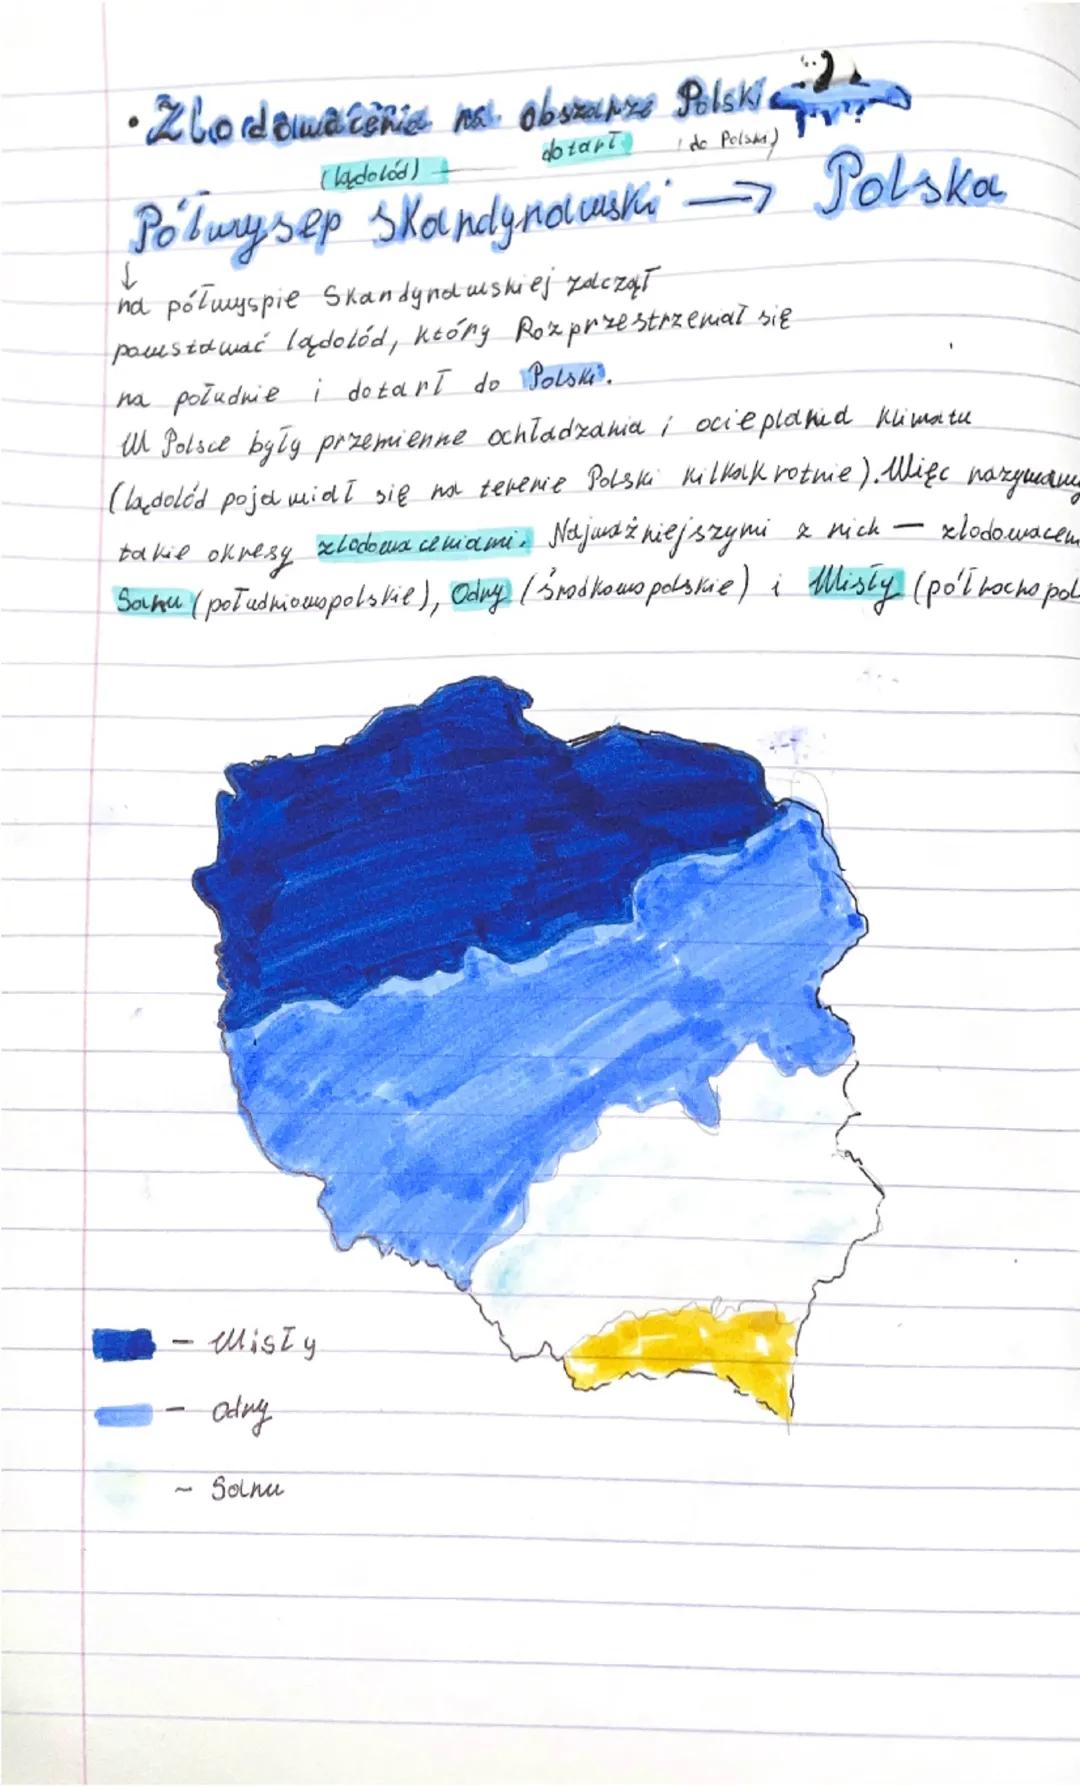 • Zlodowacenia na obszarze Polski
(lądolód) — dotarł (do Polski)
Półwysep Skandynawski → Polska
↓
na półwyspie Skandynawskiej zaczął
powstawać lądolód, który Rozprzestrzeniał się
na południe i dotarł do Polski.
W Polsce były przemienne ochładzania i ocieplania klimatu
(lądolód pojawiał się na terenie Polski kilkakrotnie). Więc nazywamy
takie okresy zlodowaceniami. Najważniejszymi z nich — zlodowacen
Sanu (południowopolskie), Odry (środkowopolskie) i Wisły (północnopol
- Wisły
- Odry
~ Sanu